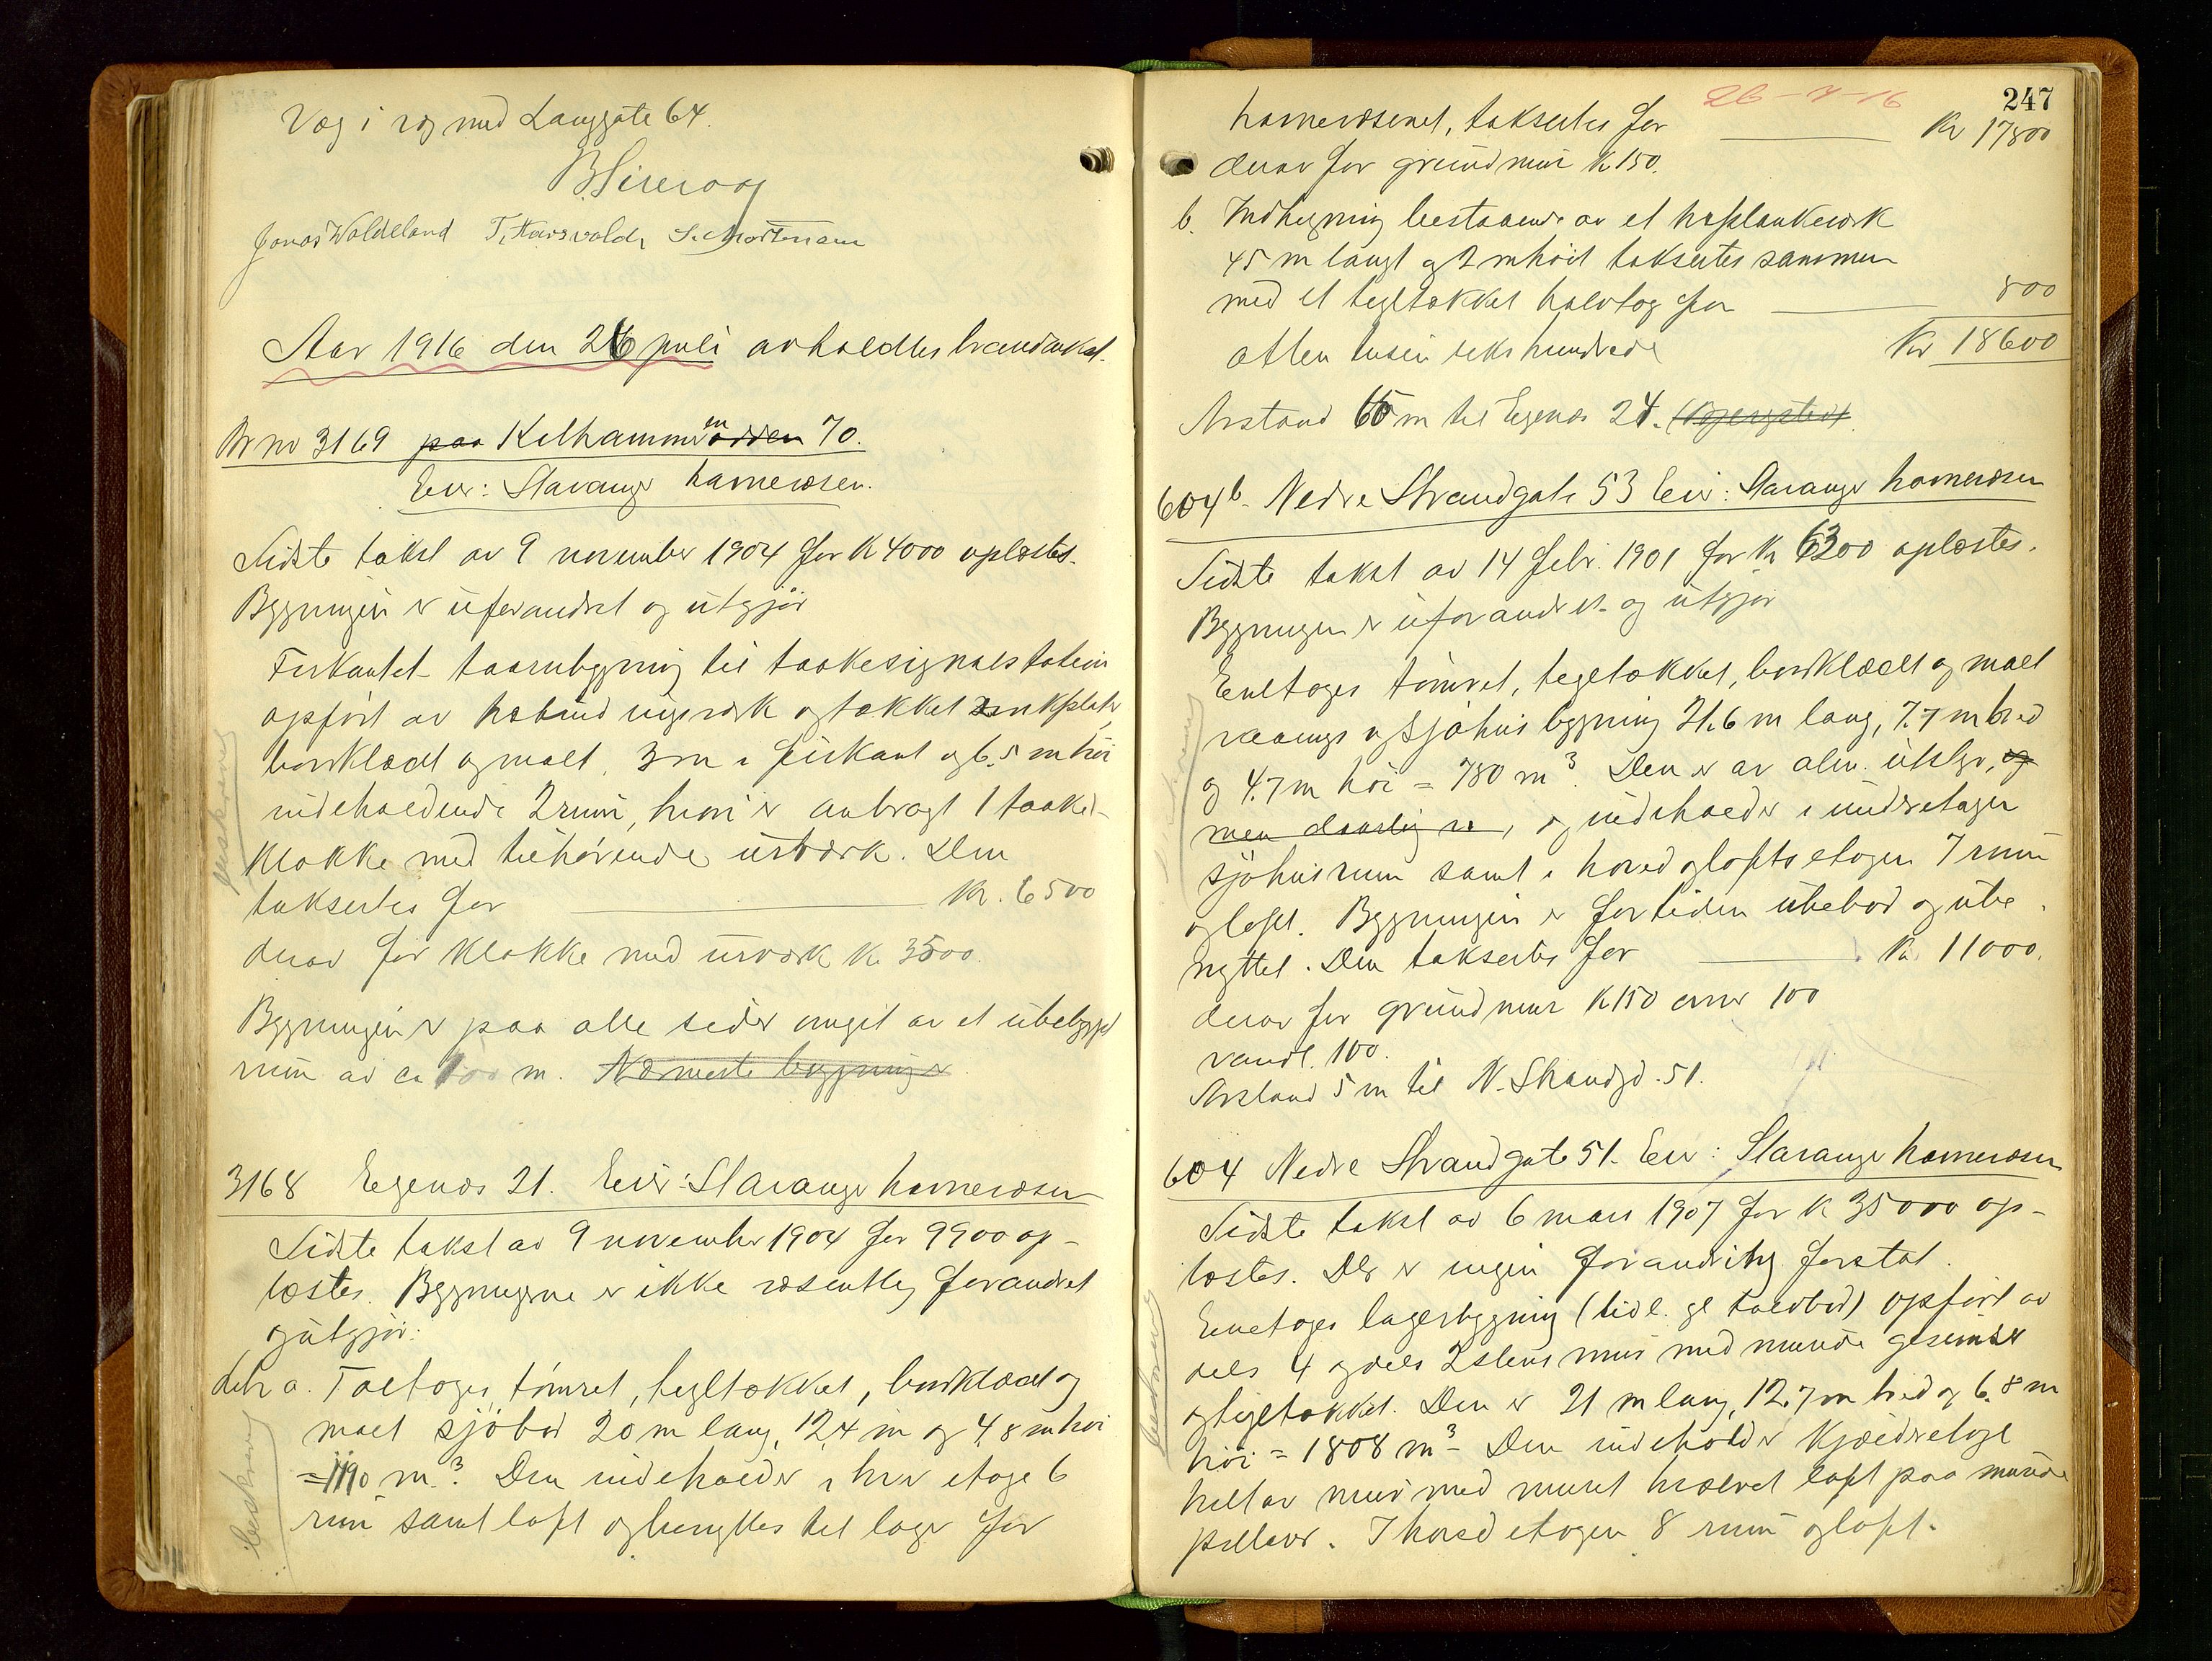 Væg i væg med Langgate 64.
Jonas Waldeland T. Haarsvaldsen S. Mortensen
Aar 1916 den 26 juli avholdtes brandtakst.
Br nr 3169 paa Kalhammerodden en 70.
Eier: Stavanger havnevæsen.
Sidste takst av 9 november 1904 for K 4000 oplæstes.
Bygningen er uforandret og utgjör
Firkantet taarnbygning til taakesignalstation
opfört av bindingsverk og tækket zinkplater,
bordklædt og malt, 3 m i firkant og 6,5 m höi
indeholdende 2 rum, hvori er anbragt 1 taake-
klokke med tilhörende urværk. Den
taksertes for Kr. 6500
derav for klokke med urværk K. 3500.
Bygningen er paa alle sider omgit av et ubebygget
rum av ca 100 m. Nærmeste bygning er
beskrevet
3168 Egenæs 21. Eier: Stavanger havnevæsen
Sidste takst av 9 november 1904 for 9900 op-
læstes. Bygningerne er ikke væsentlig forandret
og utgjör:
litr a. Toetages, tömret, tegltækket, bordklædt og
malt sjöbod 20 m lang, 12,4 m og 4,8 m höi
= 1190 m³. Den indeholder i hver etage 6
rum samt loft og benyttes til lager for
26-7-16
247
havnevæsenet, taksertes for Kr 17800
derav for grundmur K 150.
b. Indhegning bestaaende av et plankeverk
45 m langt og 2 m höit taksertes sammen
med et tegltækket halvtag for 800
atten tusen seks hundrede Kr 18600
Avstand 65 m til Egenæs 24. (Bjergsted)
604 b. Nedre Strandgate 53 Eier: Stavanger havnevæsen
Sidste takst av 14 febr. 1901 for Kr 6300 oplæstes.
Bygningen er uforandret og utgjör
Enetages tömret, tegltækket, bordklædt og malt
vaanings og sjöhusbygning 21.6 m lang, 7.7 m bred
og 4.7 m höi = 780 m³. Den er av alm. utstyr, og
men daarlig, og indeholder i underetagen
sjöhusrum samt i hoved og loftsetagen 7 rum
og loft. Bygningen er for tiden ubebod og ube-
nyttet. Den taksertes for Kr. 11000.
derav for grundmur K 150 ovner 100
vandl. 100.
Avstand 5 m til N. Strandgd. 51.
604 Nedre Strandgate 51. Eier: Stavanger havnevæsen
Sidste takst av 6 mars 1907 for K 35000 op-
læstes. Der er ingen forandring foretat.
Enetages lagerbygning (tidl. gl. toldbod) opfört av
dels 4 og dels 2 stens mur med murede gesimser
og tegltækket. Den er 21 m lang, 12.7 m bred og 6.8 m
höi = 1808 m³. Den indeholder kjælderetage
helt av mur med muret hvælvet loft paa murede
pillarer. I hovedetagen 8 rum og loft.
beskrevet